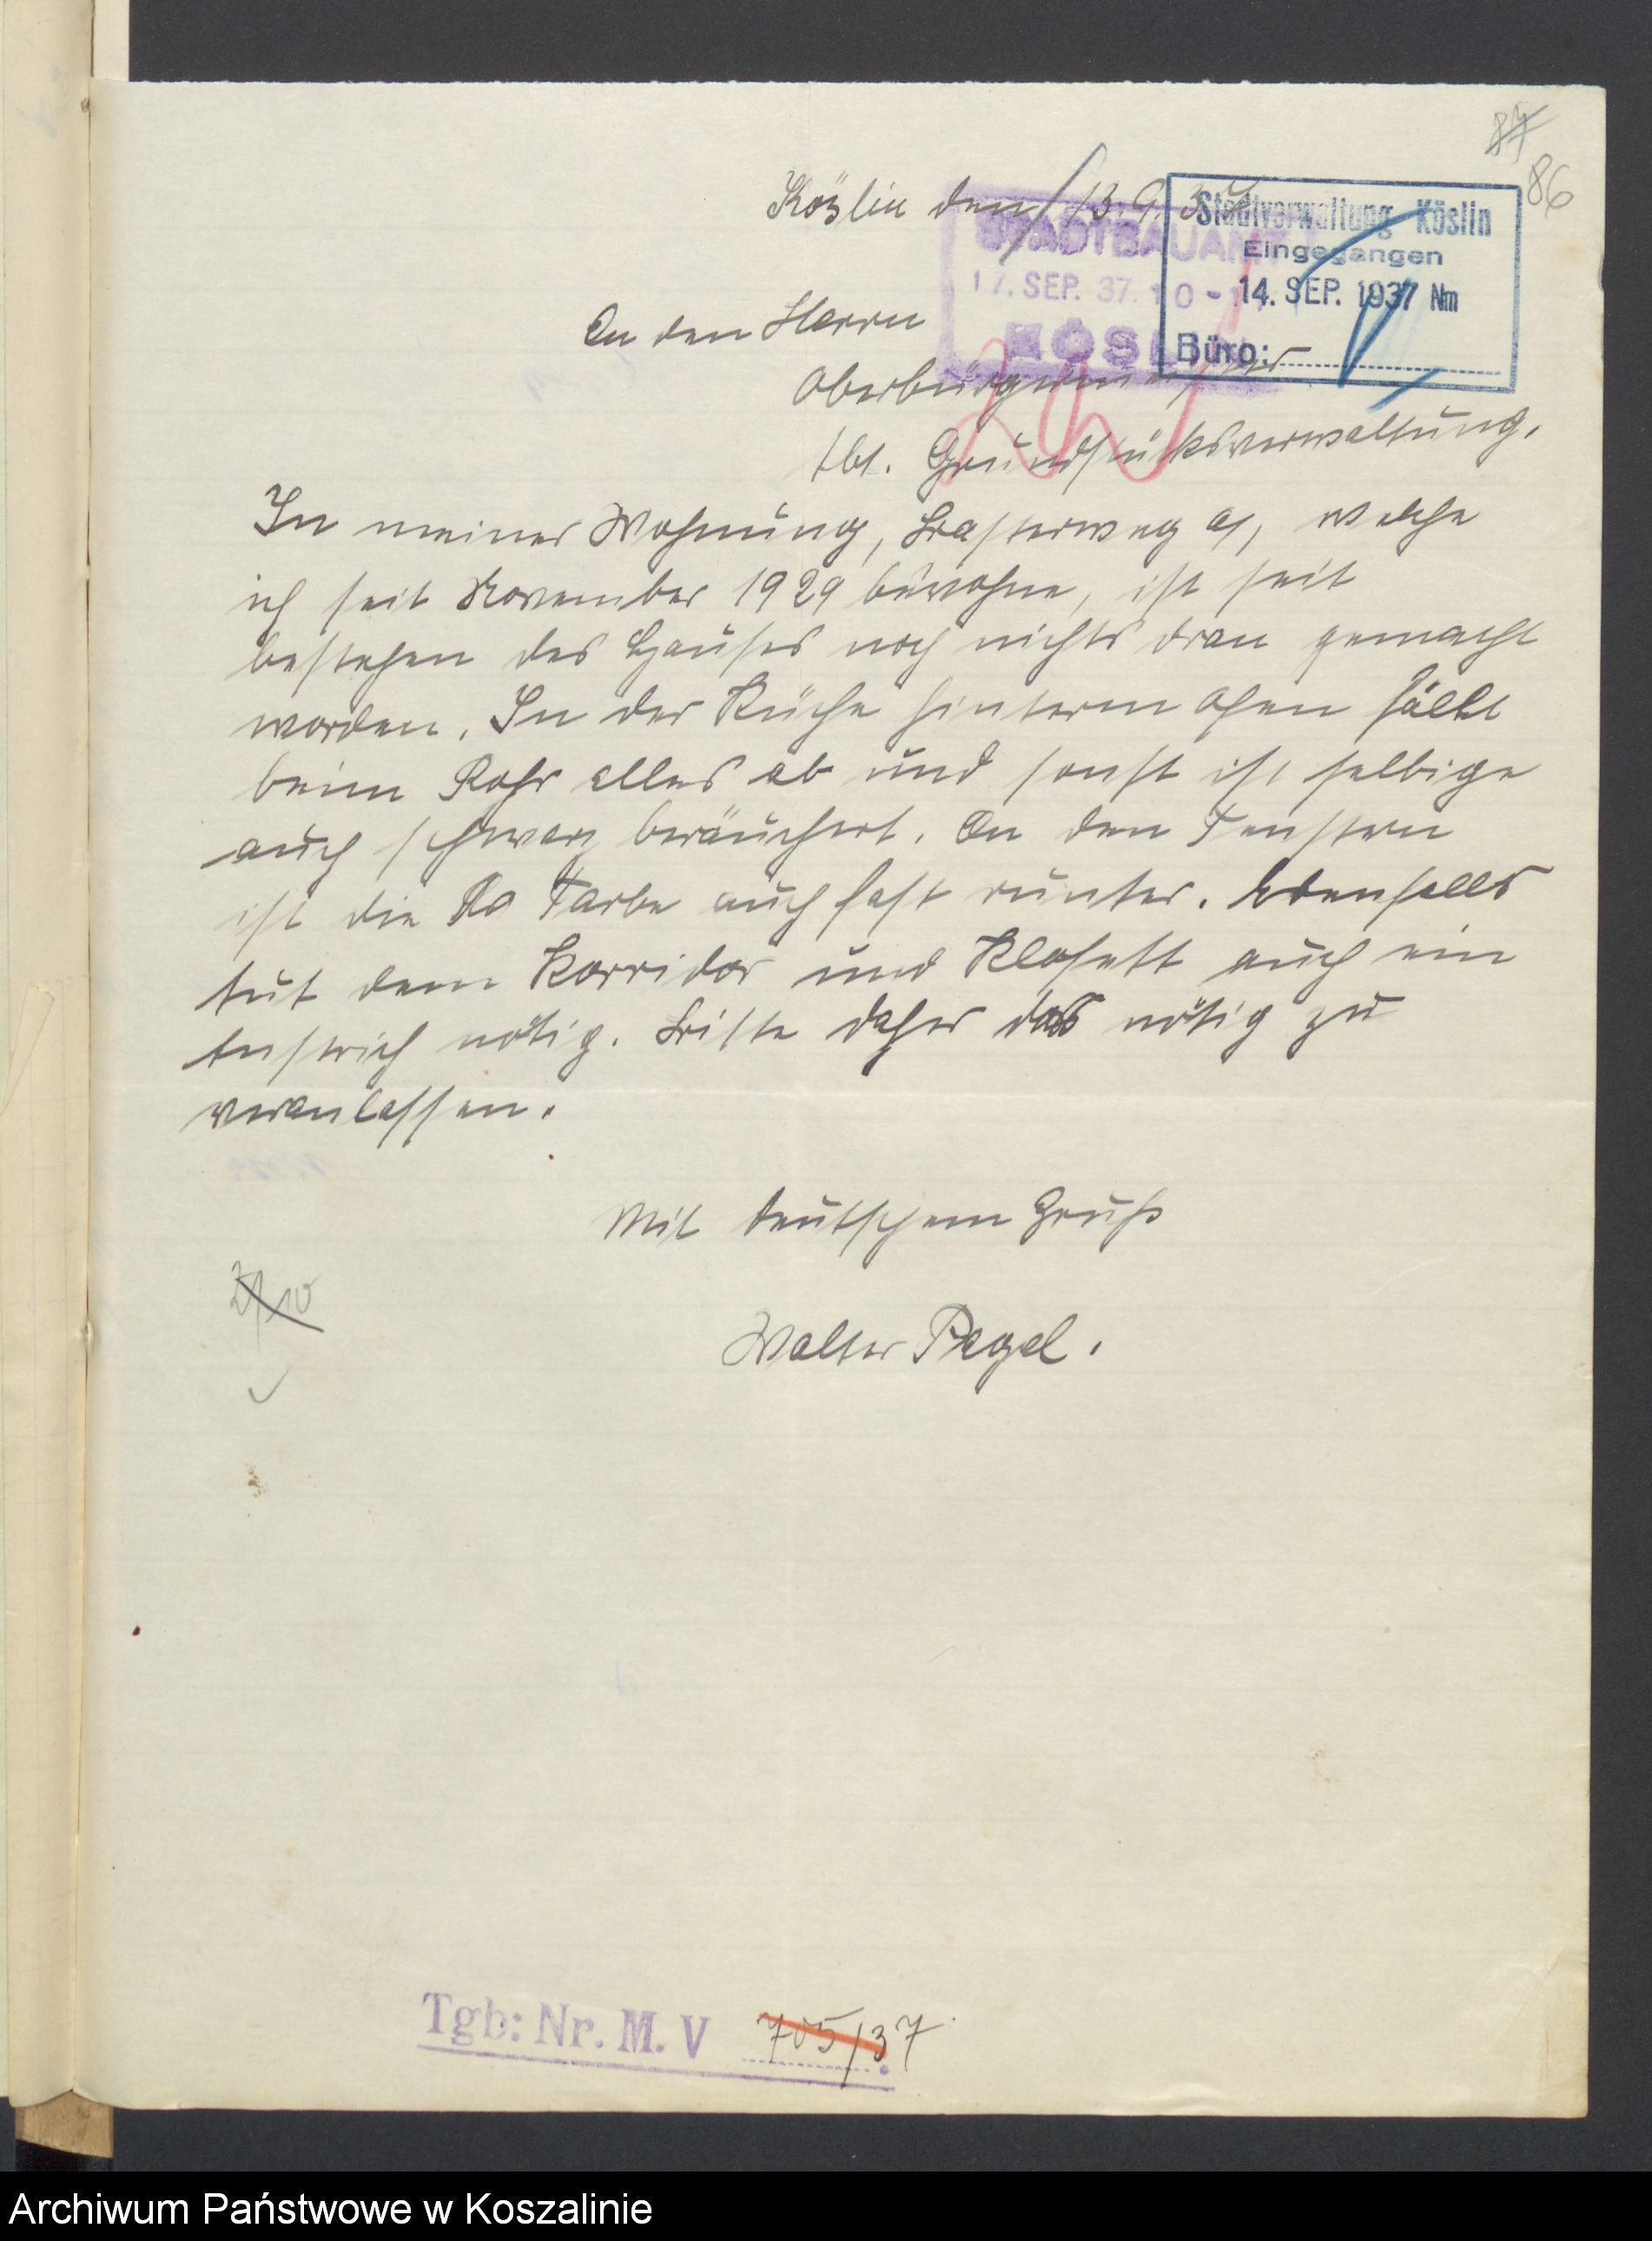 87
86
Köslin den 13.9.37
Stadtverwaltung Köslin
Eingegangen
14. SEP. 1937 Nm
Büro:
STADTBAUAMT
17. SEP. 37. 10-11
KÖSLIN
An den Herrn
Oberbürgermeister
Abt. Grundstüksverwaltung.
In meiner Wohnung, welche
ich seit November 1929 bewohne, ist seit
bestehen des Hauses noch nichts dran gemacht
worden. In der Küche hinterm Ofen fällt
beim Rohr alles ab und sonst ist selbige
auch schwarz beräuchert. An den Fenstern
ist die Farbe auch fast runter. Ebenfalls
tut dem Korridor und Klosett auch ein
Anstrich nötig. Bitte daher das nötig zu
veranlassen.
Mit deutschem Gruß
Walter Pagel.
Tgb: Nr. M. V 705/37
Archiwum Państwowe w Koszalinie